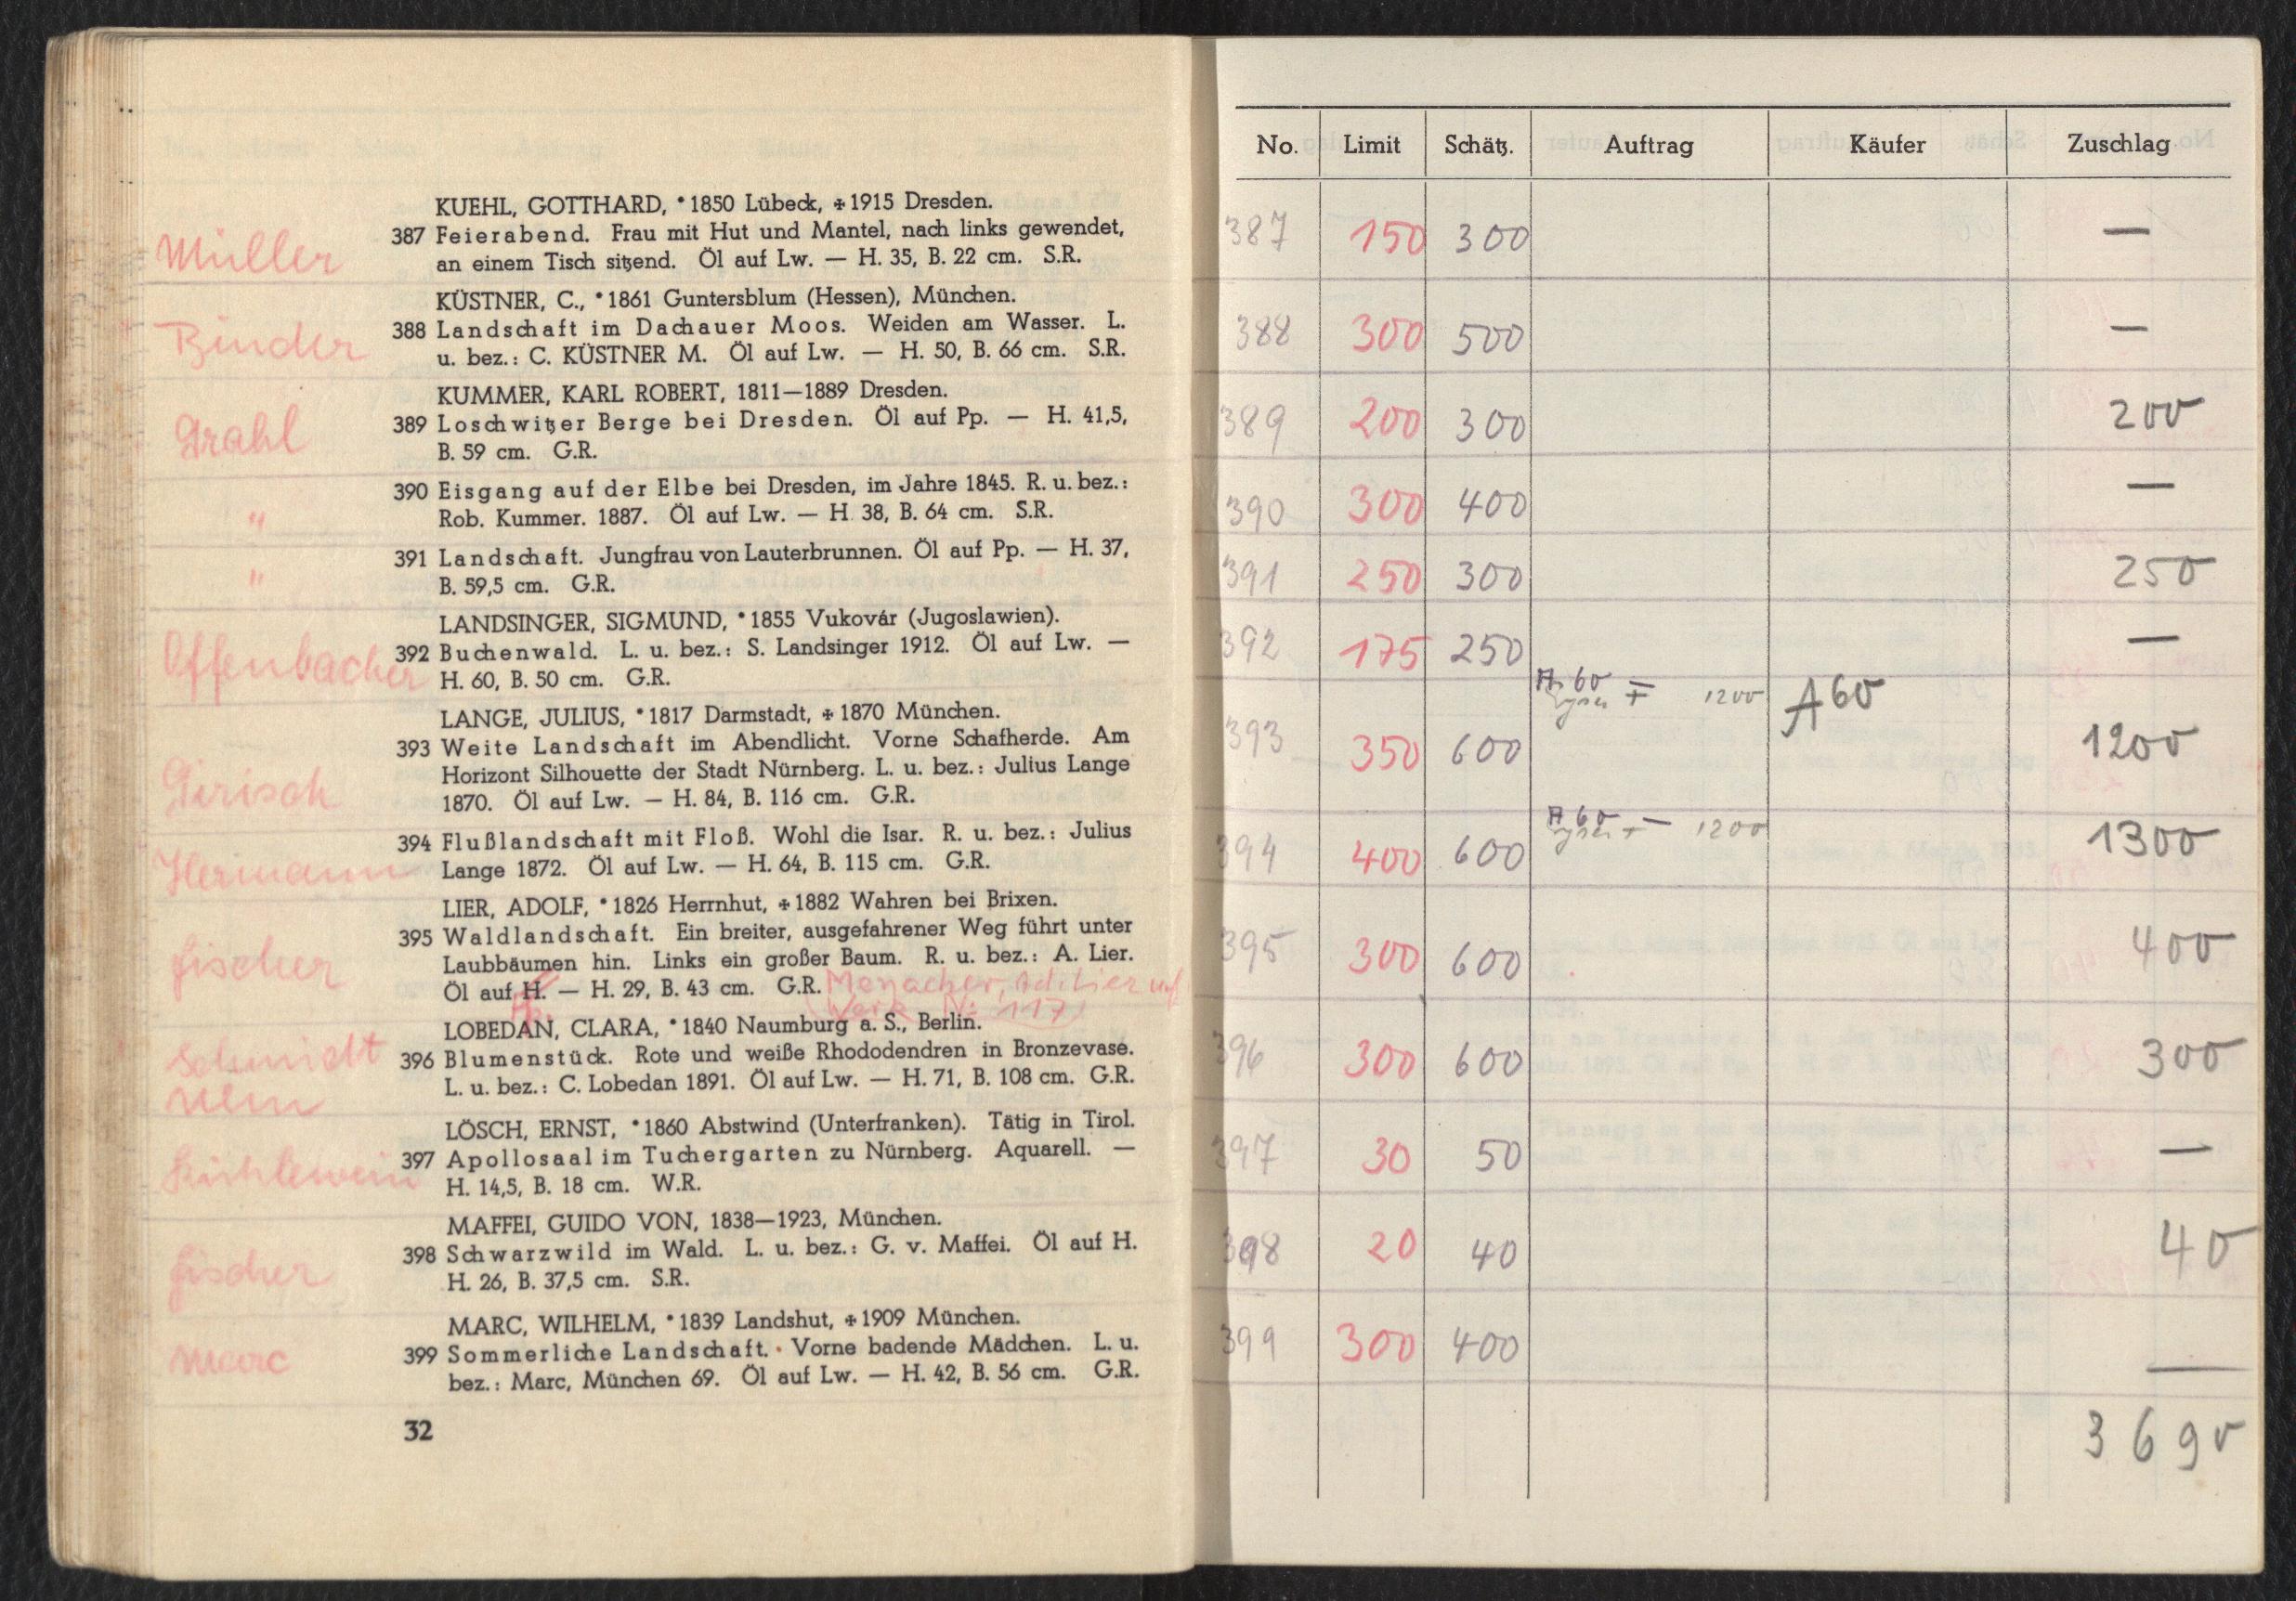 KUEHL, GOTTHARD, *1850 Lübeck, ✠1915 Dresden.
Müller
387 Feierabend. Frau mit Hut und Mantel, nach links gewendet,
an einem Tisch sitzend. Öl auf Lw. — H. 35, B. 22 cm. S.R.
KÜSTNER, C., *1861 Guntersblum (Hessen), München.
Binder
388 Landschaft im Dachauer Moos. Weiden am Wasser. L.
u. bez.: C. KÜSTNER M. Öl auf Lw. — H. 50, B. 66 cm. S.R.
KUMMER, KARL ROBERT, 1811—1889 Dresden.
Grahl
389 Loschwitzer Berge bei Dresden. Öl auf Pp. — H. 41,5,
B. 59 cm. G.R.
"
390 Eisgang auf der Elbe bei Dresden, im Jahre 1845. R. u. bez.:
Rob. Kummer. 1887. Öl auf Lw. — H 38, B. 64 cm. S.R.
"
391 Landschaft. Jungfrau von Lauterbrunnen. Öl auf Pp. — H. 37,
B. 59,5 cm. G.R.
LANDSINGER, SIGMUND, *1855 Vukovár (Jugoslawien).
Offenbacher
392 Buchenwald. L. u. bez.: S. Landsinger 1912. Öl auf Lw. —
H. 60, B. 50 cm. G.R.
LANGE, JULIUS, *1817 Darmstadt, ✠1870 München.
393 Weite Landschaft im Abendlicht. Vorne Schafherde. Am
Girisch
Horizont Silhouette der Stadt Nürnberg. L. u. bez.: Julius Lange
1870. Öl auf Lw. — H. 84, B. 116 cm. G.R.
394 Flußlandschaft mit Floß. Wohl die Isar. R. u. bez.: Julius
Hermann
Lange 1872. Öl auf Lw. — H. 64, B. 115 cm. G.R.
LIER, ADOLF, *1826 Herrnhut, ✠1882 Wahren bei Brixen.
395 Waldlandschaft. Ein breiter, ausgefahrener Weg führt unter
Fischer
Laubbäumen hin. Links ein großer Baum. R. u. bez.: A. Lier.
Öl auf H. — H. 29, B. 43 cm. G.R. (Menacher, Ad. Lier und
Werk Nr 117)
LOBEDAN, CLARA, *1840 Naumburg a. S., Berlin.
Schmidt
396 Blumenstück. Rote und weiße Rhododendren in Bronzevase.
L. u. bez.: C. Lobedan 1891. Öl auf Lw. — H. 71, B. 108 cm. G.R.
LÖSCH, ERNST, *1860 Abstwind (Unterfranken). Tätig in Tirol.
Kühlewein
397 Apollosaal im Tuchergarten zu Nürnberg. Aquarell. —
H. 14,5, B. 18 cm. W.R.
MAFFEI, GUIDO VON, 1838—1923, München.
Fischer
398 Schwarzwild im Wald. L. u. bez.: G. v. Maffei. Öl auf H.
H. 26, B. 37,5 cm. S.R.
MARC, WILHELM, *1839 Landshut, ✠1909 München.
Marc
399 Sommerliche Landschaft. Vorne badende Mädchen. L. u.
bez.: Marc, München 69. Öl auf Lw. — H. 42, B. 56 cm. G.R.
32
No. Limit Schätz. Auftrag Käufer Zuschlag
387 150 300 —
388 300 500 —
389 200 300 200
390 300 400 —
391 250 300 250
392 175 250 —
393 350 600 A 60 1200 A 60 1200
394 400 600 A 60 — 1200 1300
395 300 600 400
396 300 600 300
397 30 50 —
398 20 40 40
399 300 400 —
3690